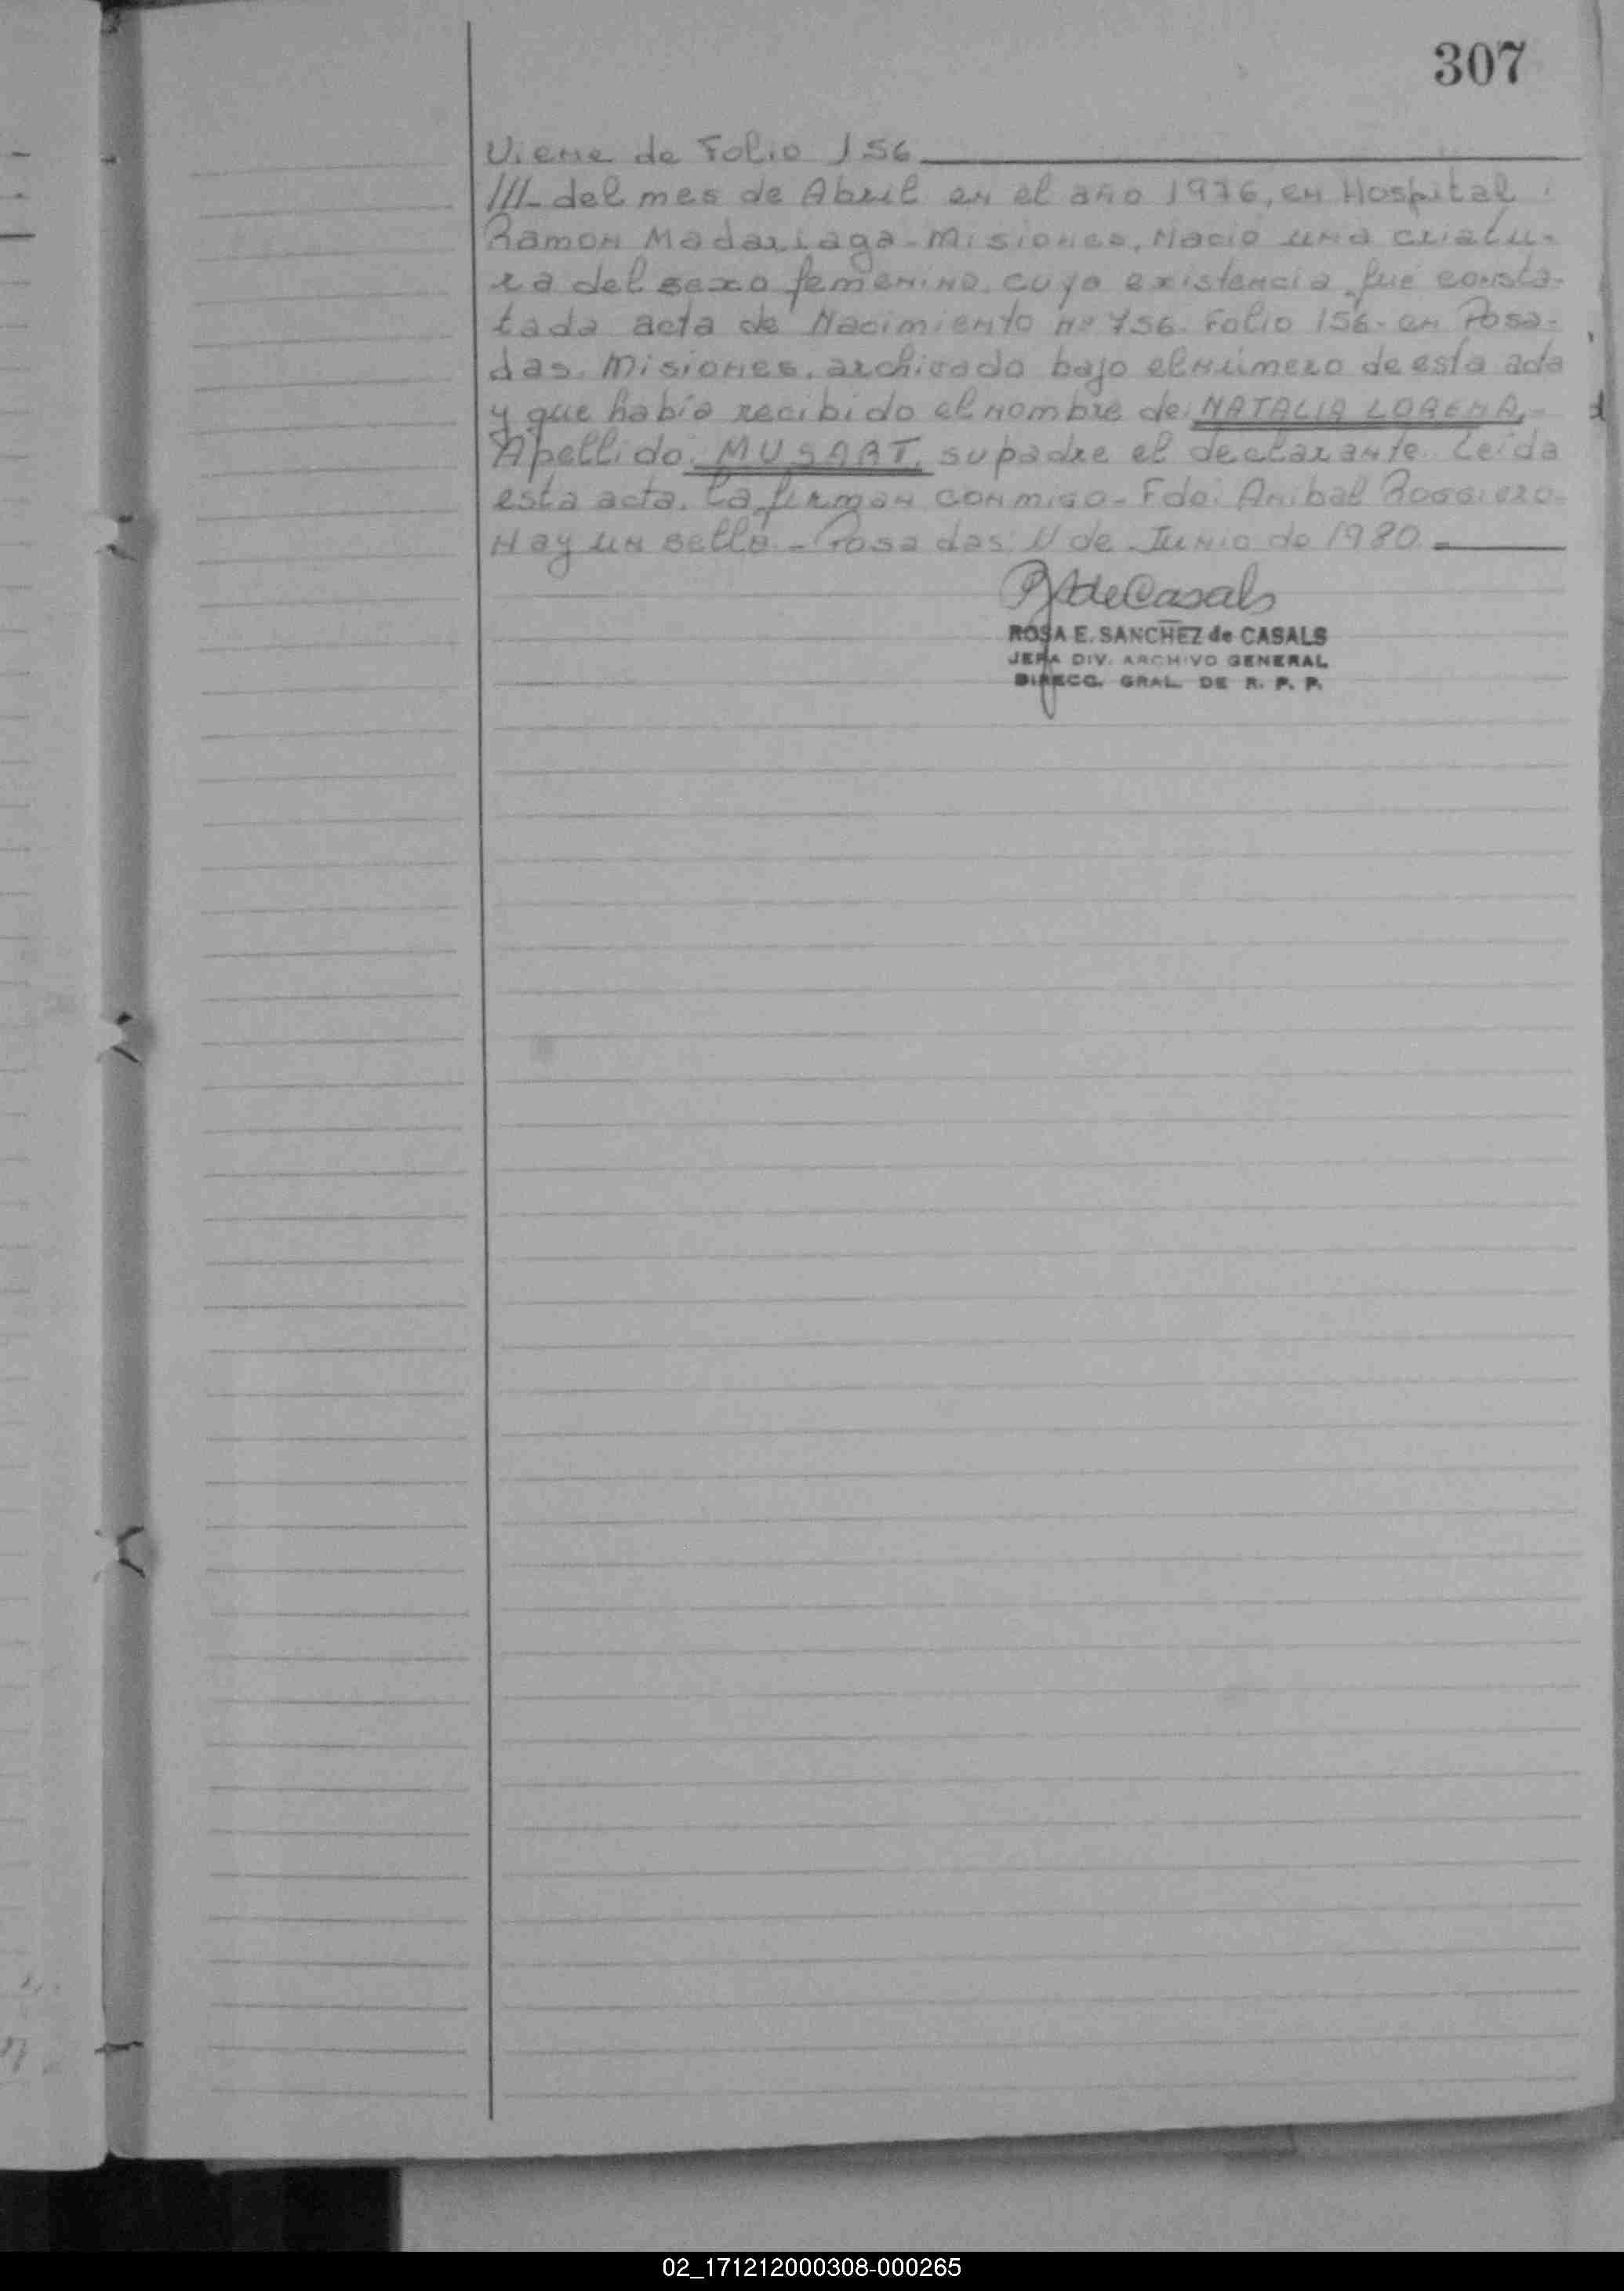 307
Viene de Folio 156
///- del mes de Abril en el año 1976, en Hospital
Ramon Madariaga - Misiones, Nacio una criatu-
ra del sexo femenino, cuya existencia fué consta-
tada acta de Nacimiento nº 756. Folio 156- en Posa-
das. Misiones. archivado bajo el número de esta acta
y que había recibido el nombre de: NATALIA LORENA,-
Apellido: MUSART, su padre el declarante. Leída
esta acta. La firman conmigo- Fdo: Anibal
Hay un sello. - Posadas: 11 de Junio de 1980.-
de Casals
ROSA E. SANCHEZ de CASALS
JEFA DIV. ARCHIVO GENERAL
DIRECC. GRAL. DE R. P. P.
02_171212000308-000265